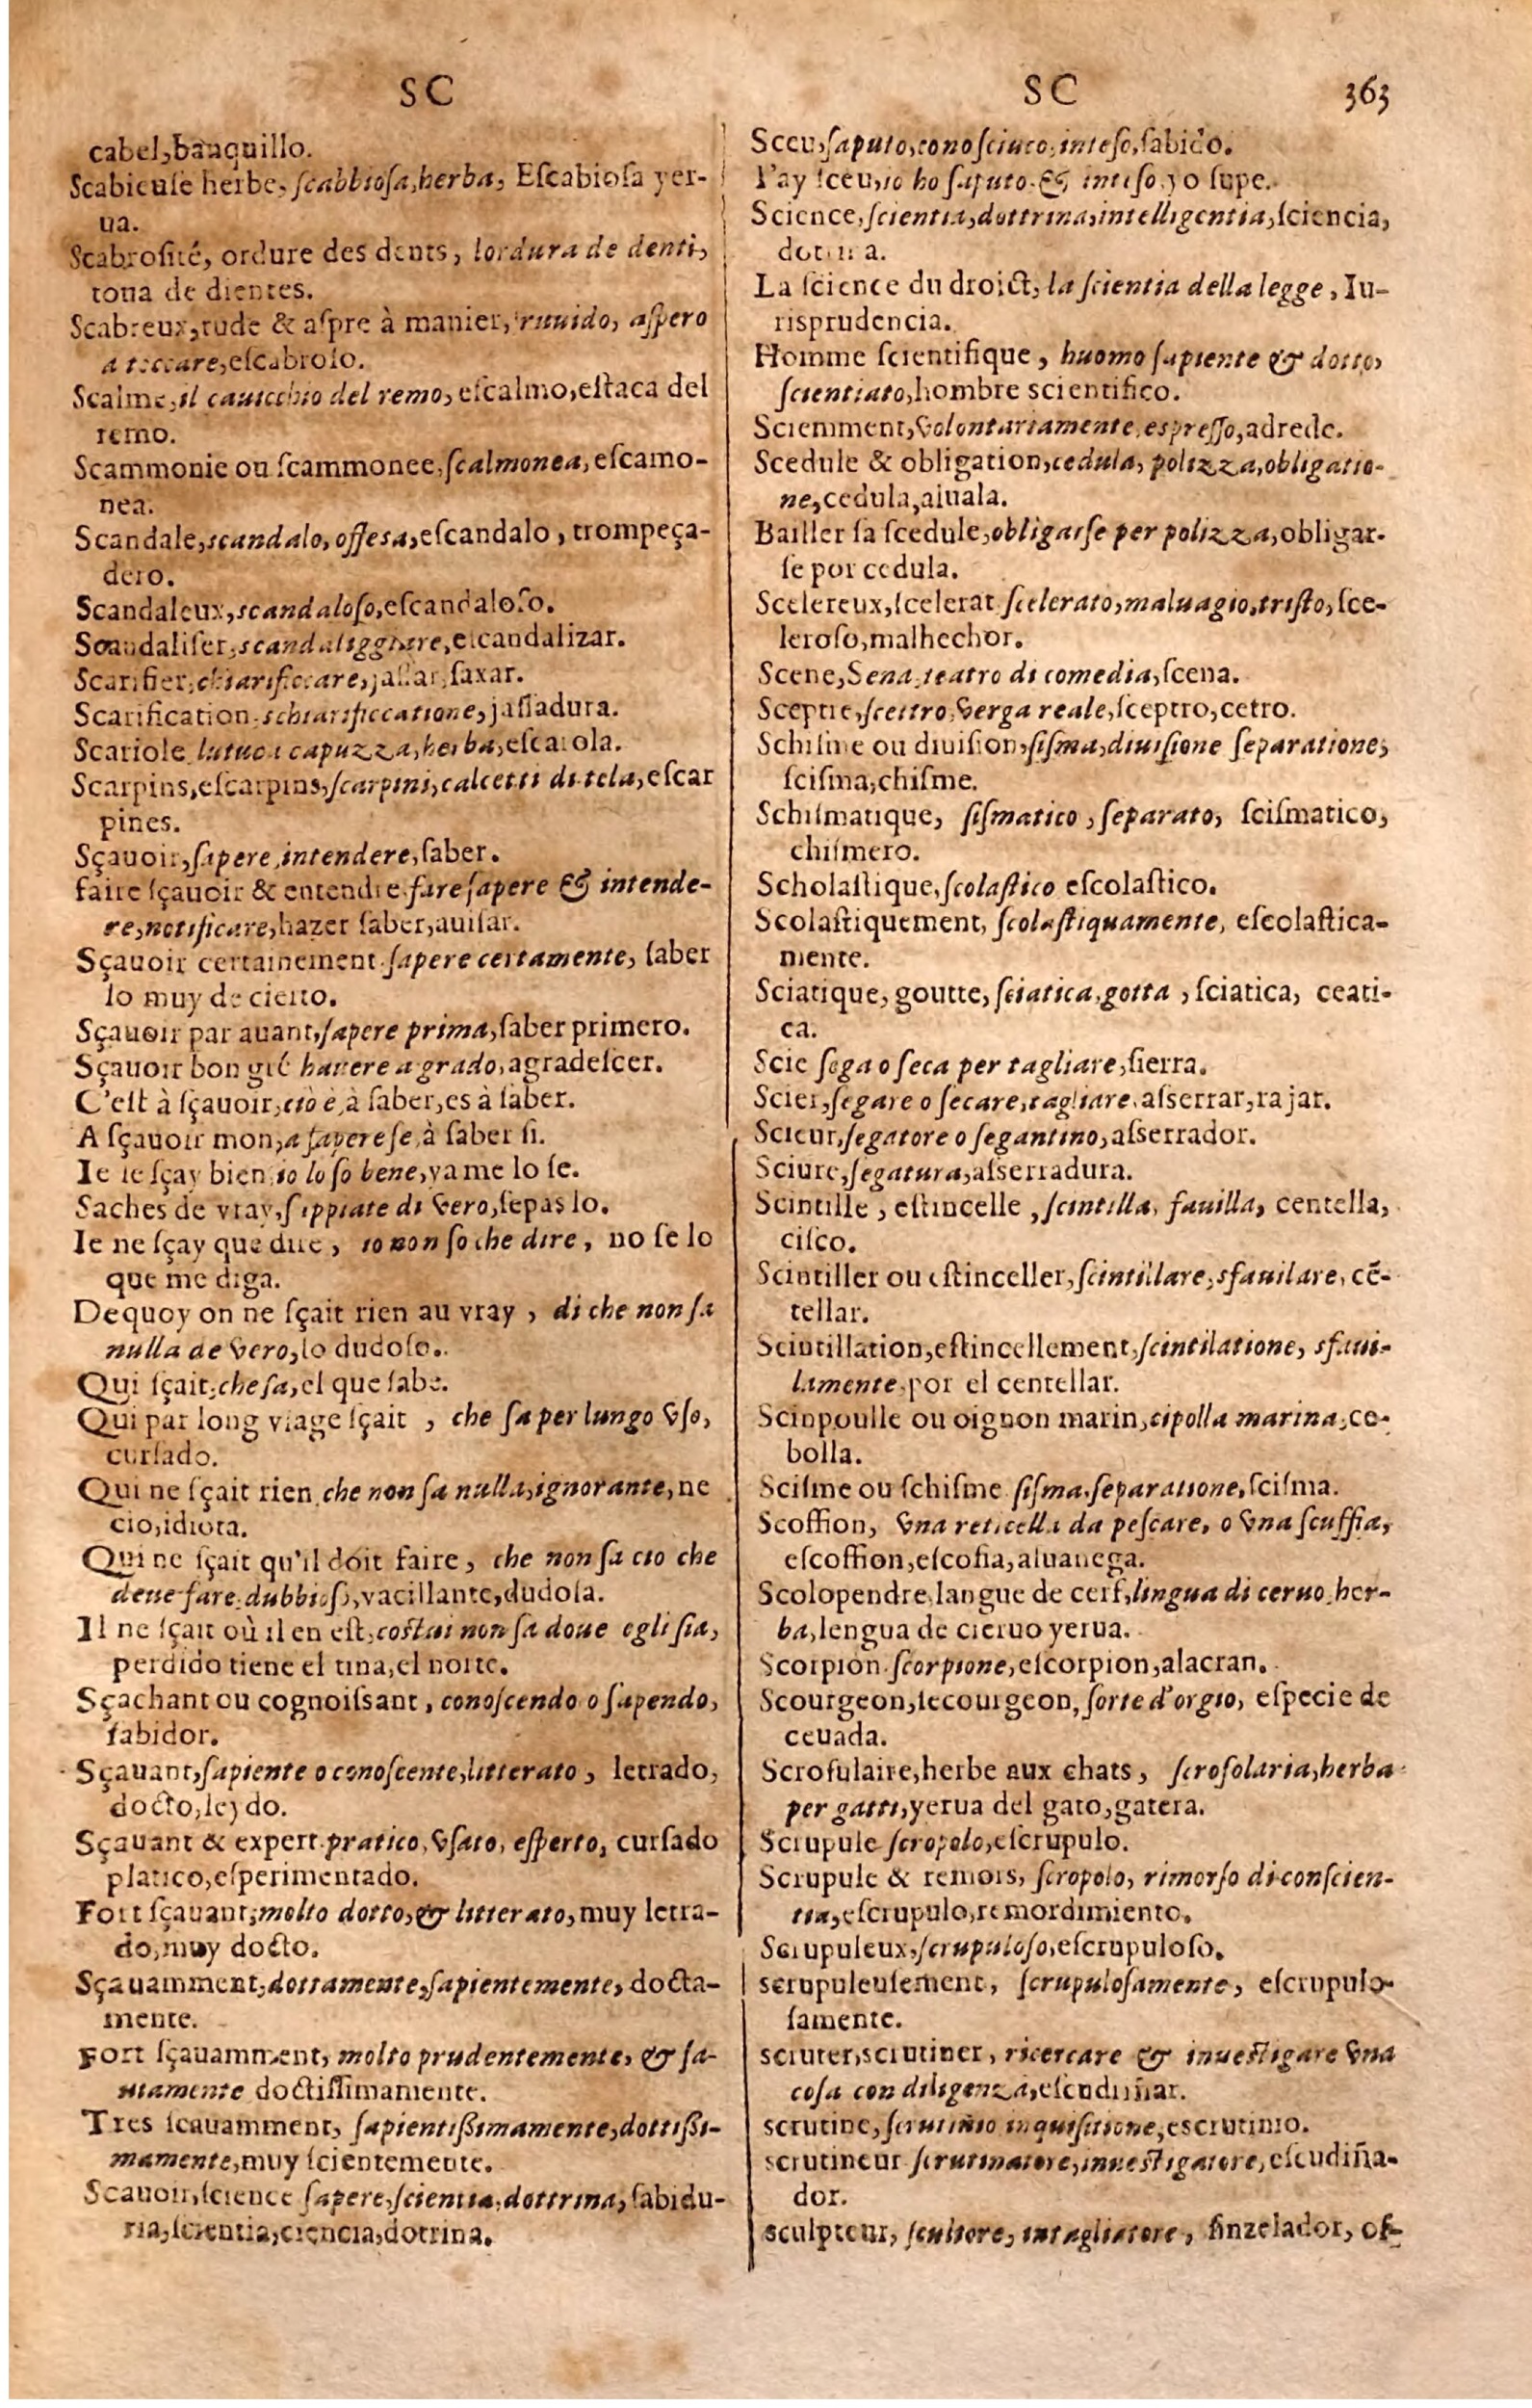 SC
cabel,banquillo.
Scabieuſe herbe, ſcabbioſa,herba, Eſcabioſa yer-
ua.
Scabroſité, ordure des dents, lordura de denti,
toua de dientes.
Scabreux,rude & aſpre à manier, ruuido, aſpero
a toccare,eſcabroſo.
Scalme,il cauicchio del remo, eſcalmo,eſtaca del
remo.
Scammonie ou ſcammonee,ſcalmonea, eſcamo-
nea.
Scandale,scandalo, offesa,eſcandalo, trompeça-
dero.
Scandaleux,scandaloſo,eſcandaloſo.
Scandaliſer,scandaliggiare,eſcandalizar.
Scarifier,chiarificcare,jaſſar,ſaxar.
Scarification.schiarificcatione,jaſſadura.
Scariole lutuca capuzza,herba,eſcarola.
Scarpins,eſcarpins,ſcarpini,calcetti di tela,eſcar
pines.
Sçauoir,ſapere,intendere,ſaber.
faire ſçauoir & entendre,fare ſapere & intende-
re,notificare,hazer ſaber,auiſar.
Sçauoir certainement.ſapere certamente, ſaber
lo muy de cierto.
Sçauoir par auant,ſapere prima,ſaber primero.
Sçauoir bon gré hauere a grado,agradeſcer.
C'eſt à ſçauoir,ciò è,à ſaber,es à ſaber.
A ſçauoir mon,a ſapere ſe,à ſaber ſi.
Ie le ſçay bien,io lo ſo bene,ya me lo ſe.
Saches de vray,ſappiate di vero,ſepas lo.
Ie ne ſçay que dire, io non ſo che dire, no ſe lo
que me diga.
Dequoy on ne ſçait rien au vray, di che non ſa
nulla de vero,lo dudoſo.
Qui ſçait,che ſa,el que ſabe.
Qui par long vſage ſçait, che ſa per lungo vſo,
curſado.
Qui ne ſçait rien,che non ſa nulla,ignorante,ne
cio,idiota.
Qui ne ſçait qu'il doit faire, che non ſa cio che
deue fare,dubbioſo,vacillante,dudoſa.
Il ne ſçait où il en eſt,costui non ſa doue egli ſia,
perdido tiene el tina,el norte.
Sçachant ou cognoiſſant, conoſcendo o ſapendo,
ſabidor.
Sçauant,ſapiente o conoſcente,litterato, letrado,
docto,leydo.
Sçauant & expert.pratico,vſato, eſperto, curſado
platico,eſperimentado.
Fort ſçauant,molto dotto,& litterato,muy letra-
do,muy docto.
Sçauamment,dottamente,ſapientemente, docta-
mente.
Fort ſçauamment, molto prudentemente, & ſa-
uiamente doctiſſimamente.
Tres ſcauamment, ſapientißimamente,dottißi-
mamente,muy ſcientemente.
Scauoir,ſcience ſapere,ſcientia,dottrina,ſabidu-
ria,ſcientia,ciencia,dotrina.
SC 363
Sceu,ſaputo,conoſciuto,inteſo,ſabido.
I'ay ſceu,io ho ſaputo & inteſo.yo ſupe.
Science,ſcientia,dottrina,intelligentia,ſciencia,
dotrina.
La ſcience du droict, la ſcientia della legge, Iu-
risprudencia.
Homme ſcientifique, huomo ſapiente & dotto,
ſcientiato,hombre scientifico.
Sciemment,volontariamente,espreſſo,adrede.
Scedule & obligation,cedula, polizza,obligatio-
ne,cedula,aluala.
Bailler ſa ſcedule,obligarſe per polizza,obligar-
ſe por cedula.
Scelereux,ſcelerat ſcelerato,maluagio,triſto,ſce-
leroſo,malhechor.
Scene,Sena,teatro di comedia,ſcena.
Sceptre,ſcettro,verga reale,ſceptro,cetro.
Schiſme ou diuiſion,ſiſma,diuiſione ſeparatione,
ſciſma,chiſme.
Schiſmatique, ſiſmatico,ſeparato, ſciſmatico,
chiſmero.
Scholaſtique,ſcolaſtico eſcolaſtico.
Scolaſtiquement, ſcolaſtiquamente, eſcolaſtica-
mente.
Sciatique, goutte, ſciatica,gotta, ſciatica, ceati-
ca.
Scie ſega o ſeca per tagliare,ſierra.
Scier,ſegare o ſecare,tagliare,aſserrar,rajar.
Scieur,ſegatore o ſegantino,aſserrador.
Sciure,ſegatura,aſserradura.
Scintille, eſtincelle,ſcintilla, fauilla, centella,
ciſco.
Scintiller ou eſtinceller,ſcintillare,sfauilare, cē-
tellar.
Scintillation,eſtincellement,ſcintilatione, sfaui-
lamente,por el centellar.
Scinpoulle ou oignon marin,cipolla marina,ce-
bolla.
Sciſme ou ſchiſme ſiſma,ſeparatione,ſciſma.
Scoffion, vna reticella da peſcare, o vna scuffia,
eſcoffion,eſcofia,aluanega.
Scolopendre,langue de cerf,lingua di ceruo,her-
ba,lengua de cieruo yerua.
Scorpion.ſcorpione,eſcorpion,alacran.
Scourgeon,ſecourgeon,ſorte d'orgio, eſpecie de
ceuada.
Scrofulaire,herbe aux chats, ſcrofolaria,herba
per gatti,yerua del gato,gatera.
Scrupule ſcropolo,eſcrupulo.
Scrupule & remors, ſcropolo, rimorſo di conſcien-
tia,eſcrupulo,remordimiento.
Scrupuleux,ſcrupuloſo,eſcrupuloſo.
scrupuleuſement, ſcrupuloſamente, eſcrupulo-
ſamente.
scruter,scrutiner, ricercare & inueſtigare vna
coſa con diligenza,eſcudiñar.
scrutine,ſcrutinio inquiſitione,escrutinio.
scrutineur ſcrutinatore,inueſtigatore,eſcudiña-
dor.
sculpteur, ſcultore, intagliatore, ſinzelador, oſ-